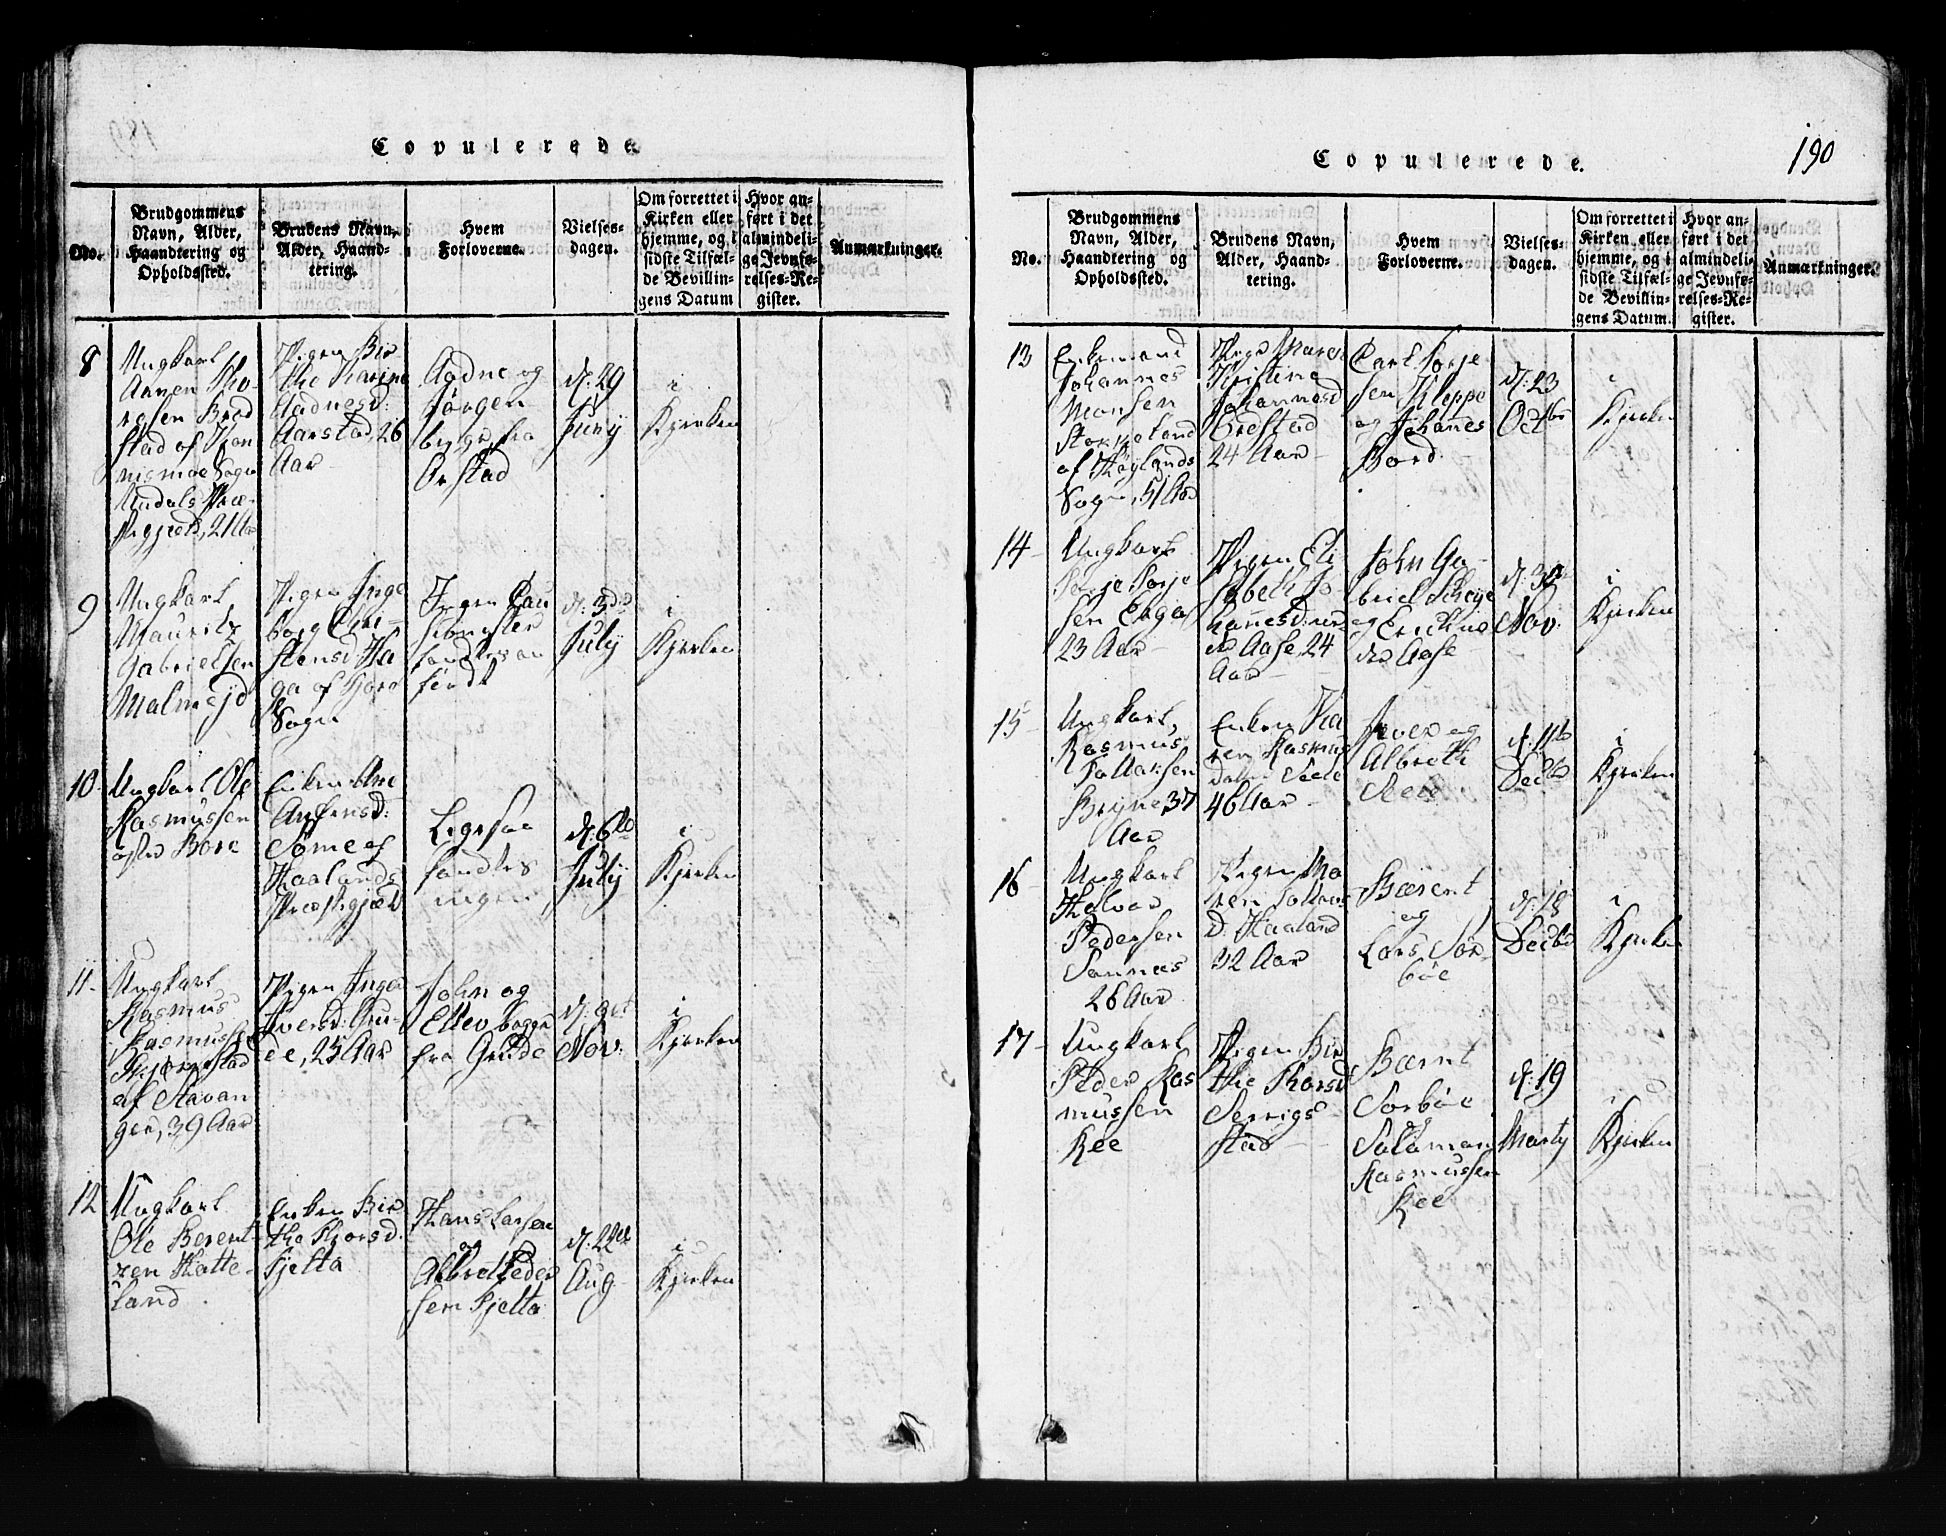 Copulerede.
No.
Brudgommens
Navn, Alder,
Haandtering og
Opholdssted.
Brudens Navn,
Alder, Haand-
tering.
Hvem
Forloverne.
Vielses-
dagen.
Om forrettet i
Kirken eller
hjemme, og i
sidste Tilfæl-
de Bevillin-
gens Datum
Hvor an-
ført i det
almindeli-
ge Jevnfø-
relses-Re-
gister.
Anmærkninger.
8
Ungkarl
Sogn
21 Aar
Pigen Bir
the Karine
Aadnesd:
Aarstad, 26
Aar
Aadne og
Jørgen
begge fra
Orstad
d: 29
Juny
i
Kjerken
9
Ungkarl
Mauritz
Gabrielsen
Malmejd
Pigen Inge
borg Chri-
stensd Ha
ga af
Sogn
d: 3die
July
i
Kjerken
10
Ungkarl Ole
Rasmussen
Bore
Enken Ane
Sømme af
Haalands
Præstegjæld
Ligesaa
ingen
d: 6te
July
i
Kjerken
11.
Ungkarl
Rasmus
Rasmussen
af Stavan
ger, 39 Aar
Pigen Inger
Iversd: Gru-
de, 25 Aar
John og
Ellev begge
fra Grude
Nov:
i
Kjerken
12
Ungkarl
Ole Berent-
zen Hatte-
land
Enken Bir
the Thorsd.
Tjelta
Hans Larsen
og
Albret Peder
sen Tjelta
d: 22de
Aug
i
Kjerken
Copulerede.
190
No.
Brudgommens
Navn, Alder,
Haandtering og
Opholdssted.
Brudens Navn,
Alder, Haand-
tering.
Hvem
Forloverne.
Vielses-
dagen.
Om forrettet i
Kirken eller
hjemme, og i
sidste Tilfæl-
de Bevillin-
gens Datum.
Hvor an-
ført i det
almindeli-
ge Jevnfø-
relses-Re-
gister.
Anmærkninger.
13
Enkemand
Johannes
Monsen
Stokkeland
af Høylands
Sogn, 51 Aar
Pige Maren
Kristine
Johannesd
Orestad
24 Aar
Carl Torje
sen Kleppe
og Johanes
Bord
d: 23
Octbr
i
Kjerken
14
Ungkarl
Torje Torje
sen
23 Aar
Pigen Eli
sabeth Jo
hannesd: ner
dre Aase, 24
Aar
John Ga-
briel
og Erick ne
dre Aase
Nov:
i
Kjerken
15
Ungkarl,
Rasmus
Tollaksen
Bryne 37
Aar
Enken Ka
ren Rasmus
datter Seele
46 Aar
Iver og
Albreth
Seele
d: 11te
Decbr
i
Kjerken
16
Ungkarl
Halvor
Pedersen
Sannes
26 Aar
Pigen Ma
ren Tollavs
D: Haaland
32 Aar
Bærent
og
Lars Sør-
bøe
d: 18
Decbr
i
Kjerken
17
Ungkarl
Peder Ras
mussen
Ree
Pigen Bir
the Thorsd
Serrigs-
stad
Bærnt
Sørbøe
og
Salamon
Rasmussen
Ree
d: 19
Marty
i
Kjerken